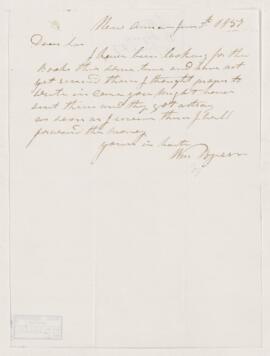 Dear Sir
I have been looking for the
Books this some time and have not
yet received them I thought proper to
write in case you might have
sent them and they got astray
as soon as I receive them I shall
forward the money
yours in haste
Wm